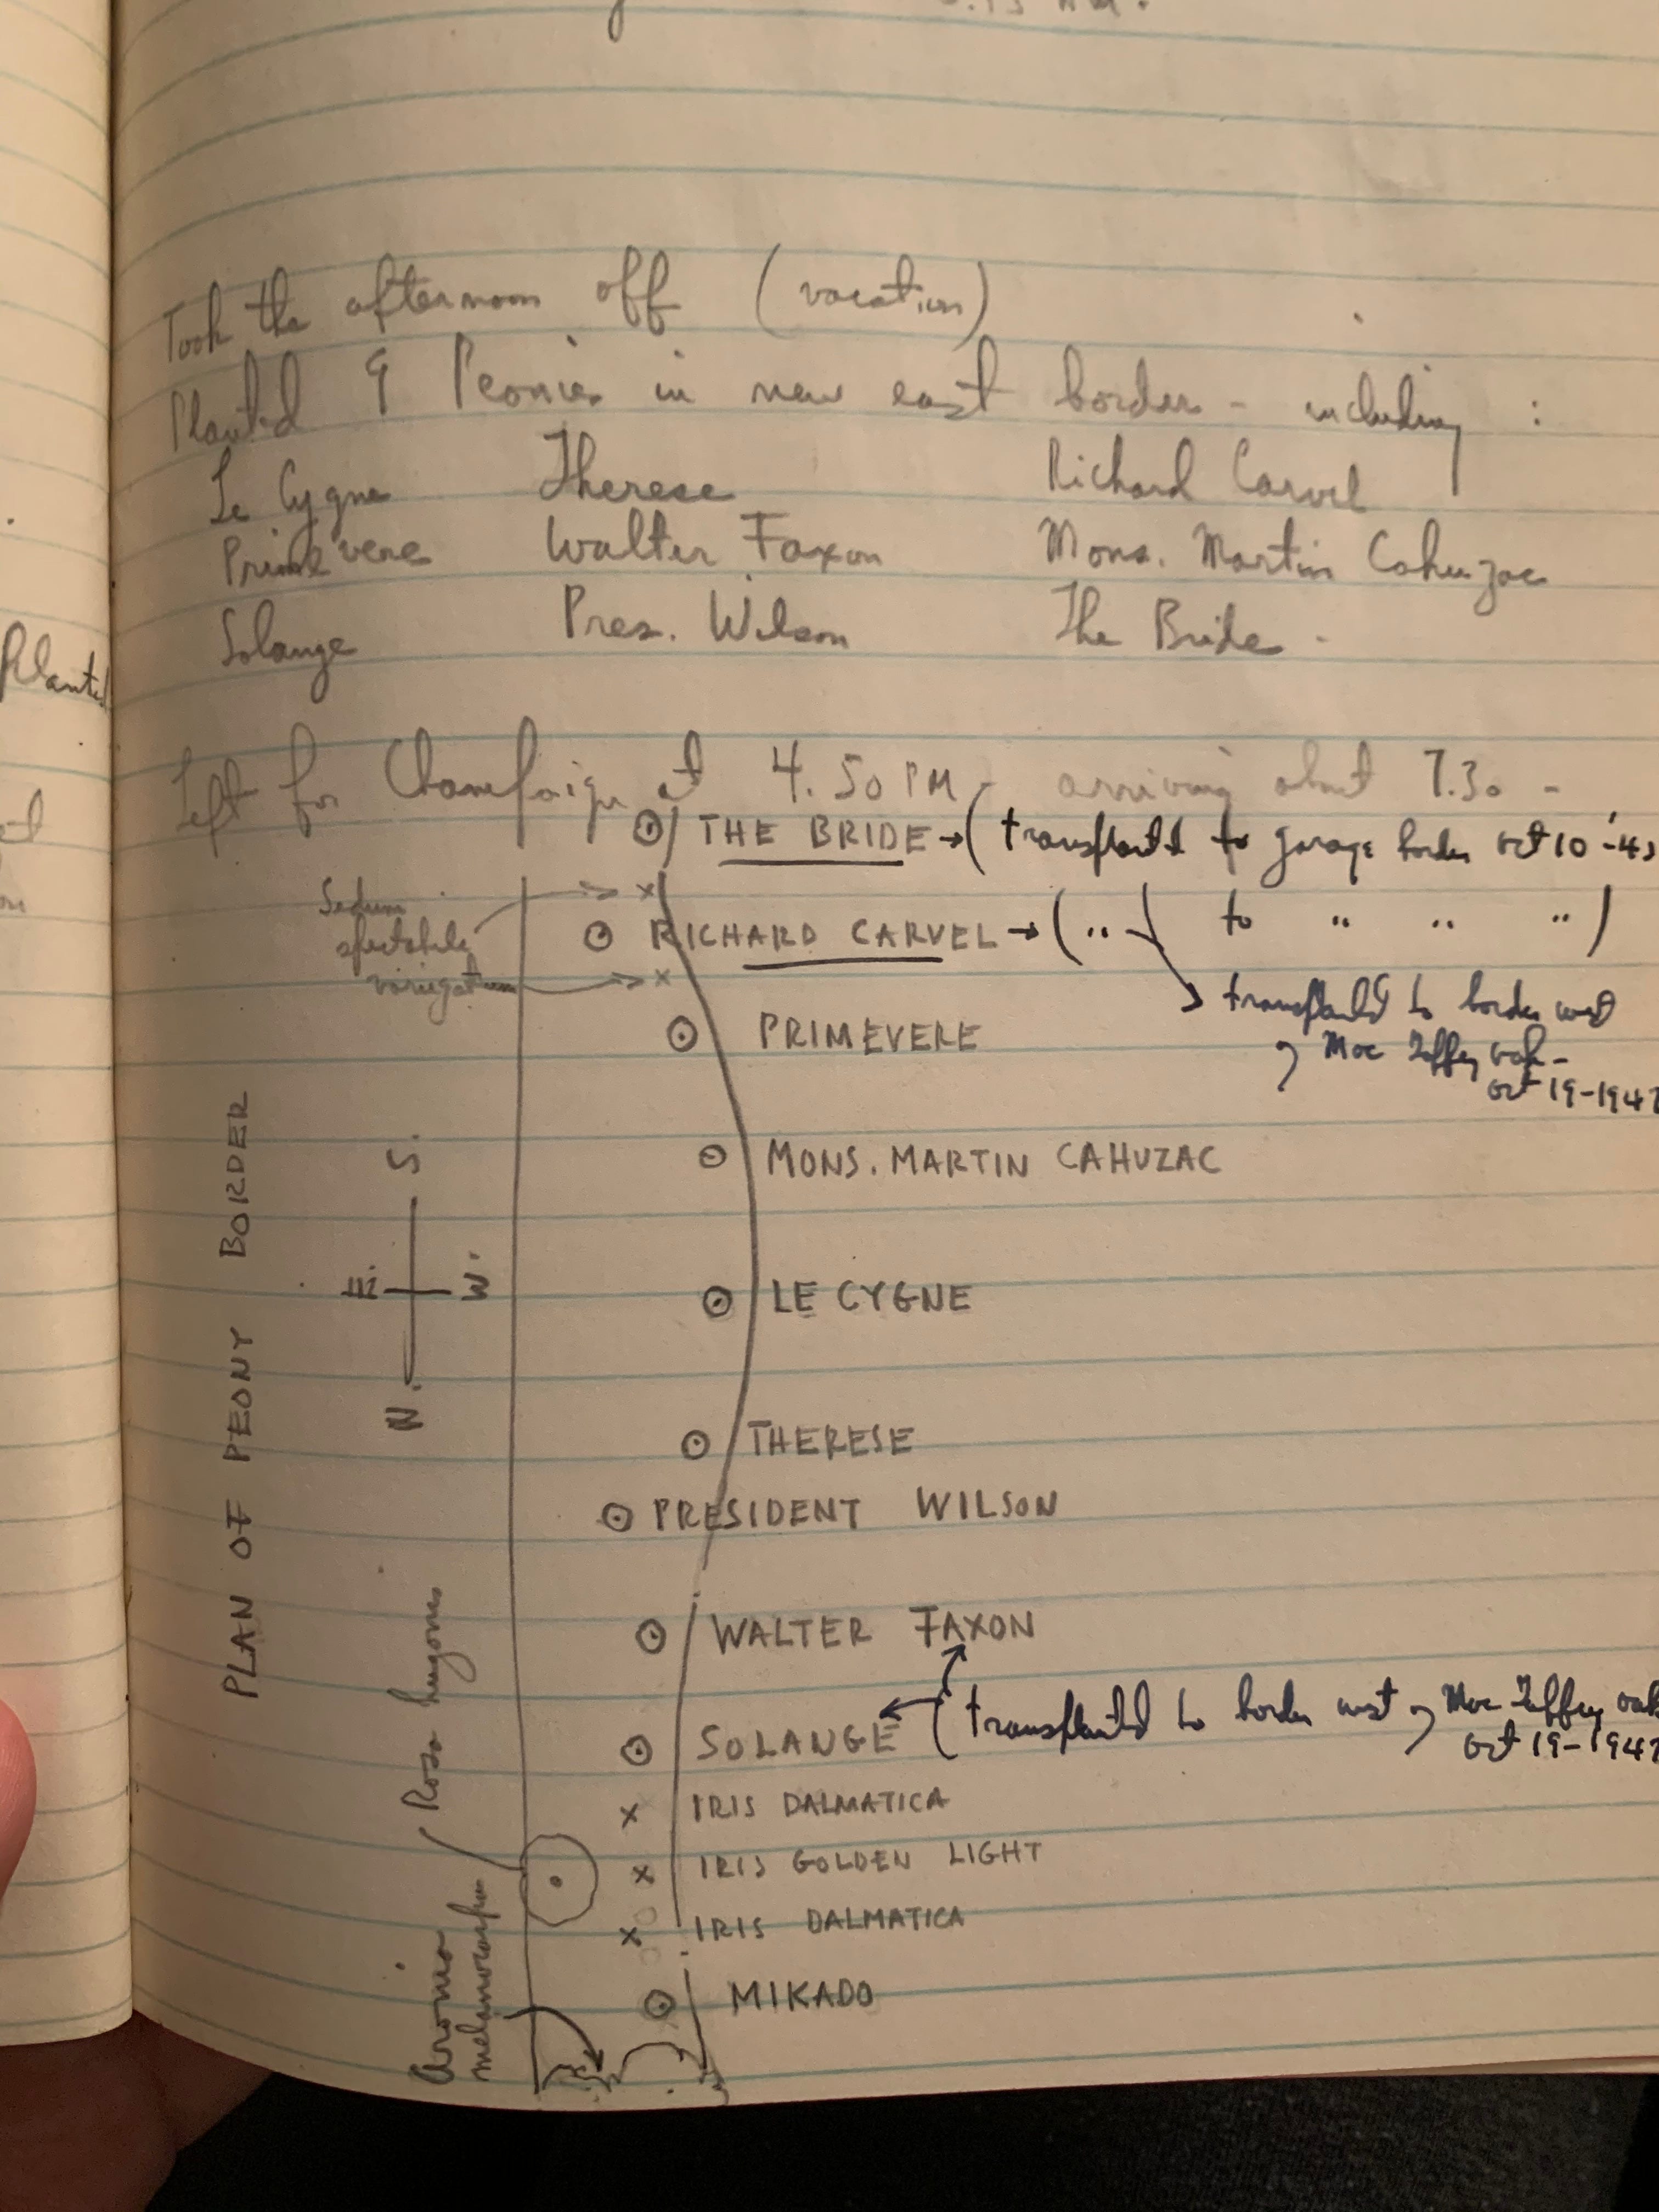 Took the afternoon off (vacation)
Planted 9 Peonies in new east border - including :
Le Cygne Therese Richard Carvel
Primevere Walter Faxon Mons. Martin Cahuzac
Solange Pres. Wilson The Bride -
Left for Champaign at 4.50 PM - arriving about 7.30 -
THE BRIDE → (transplanted to garage border Oct 10 -'43
Sedum
spectabile
variegatum
RICHARD CARVEL → ( " to " " " )
transplanted to border west
of Mac Jeffrey oak -
Oct 19-1947
PRIMEVERE
MONS. MARTIN CAHUZAC
LE CYGNE
THERESE
PRESIDENT WILSON
WALTER FAXON
SOLANGE (transplanted to border west of Mac Jeffrey oak
Oct 19-1947
IRIS DALMATICA
IRIS GOLDEN LIGHT
IRIS DALMATICA
MIKADO
PLAN OF PEONY BORDER
S.
E. W.
N.
Rosa hugonis
Aronia
melanocarpa
Planted